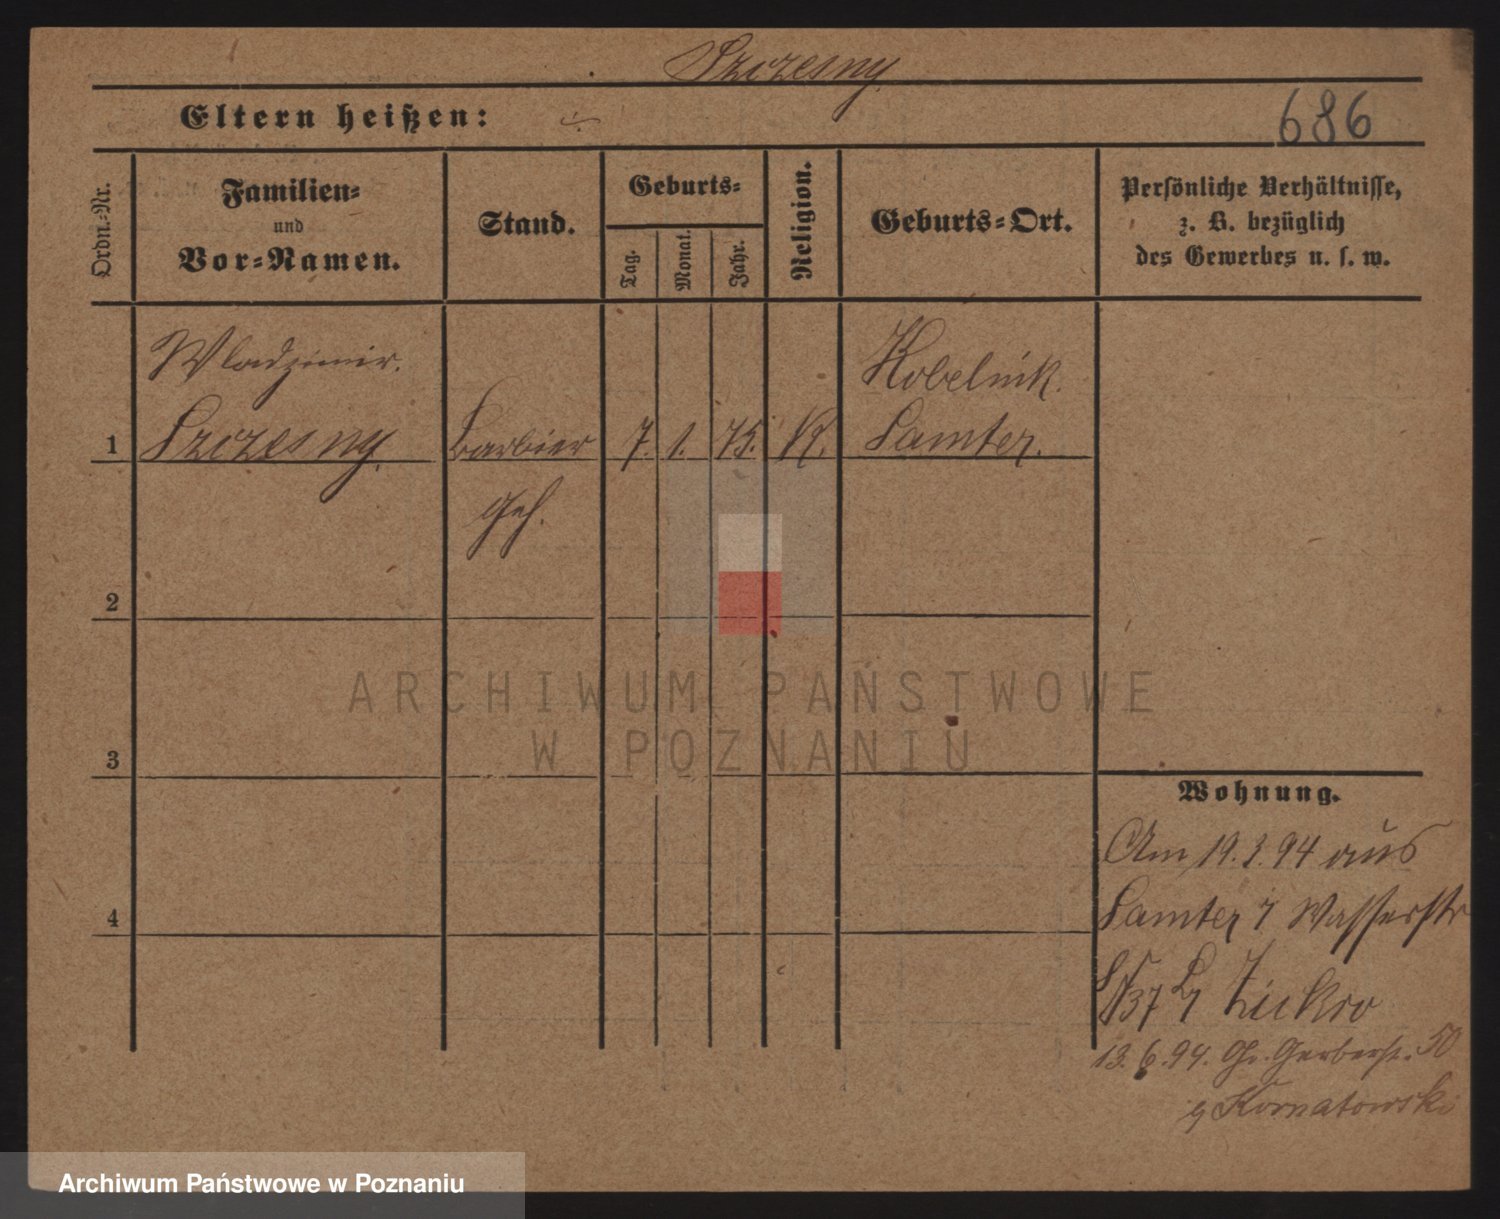 Szczesny
Eltern heißen:
686
Ordn.-Nr.
Familien-
und
Vor-Namen.
Stand.
Geburts-
Tag.
Monat.
Jahr.
Religion.
Geburts-Ort.
Persönliche Verhältnisse,
z. B. bezüglich
des Gewerbes u. s. w.
Wladzimir.
Kobelnik.
1 Szczesny Barbier 7. 1. 75. K. Samter.
Geh.
2
ARCHIWUM PAŃSTWOWE
W POZNANIU
3
Wohnung.
Am 19.3.94 aus
4
Samter Wasserstr
37
13.6.94. Gr. Gerberstr. 50
Kornatowski
Archiwum Państwowe w Poznaniu